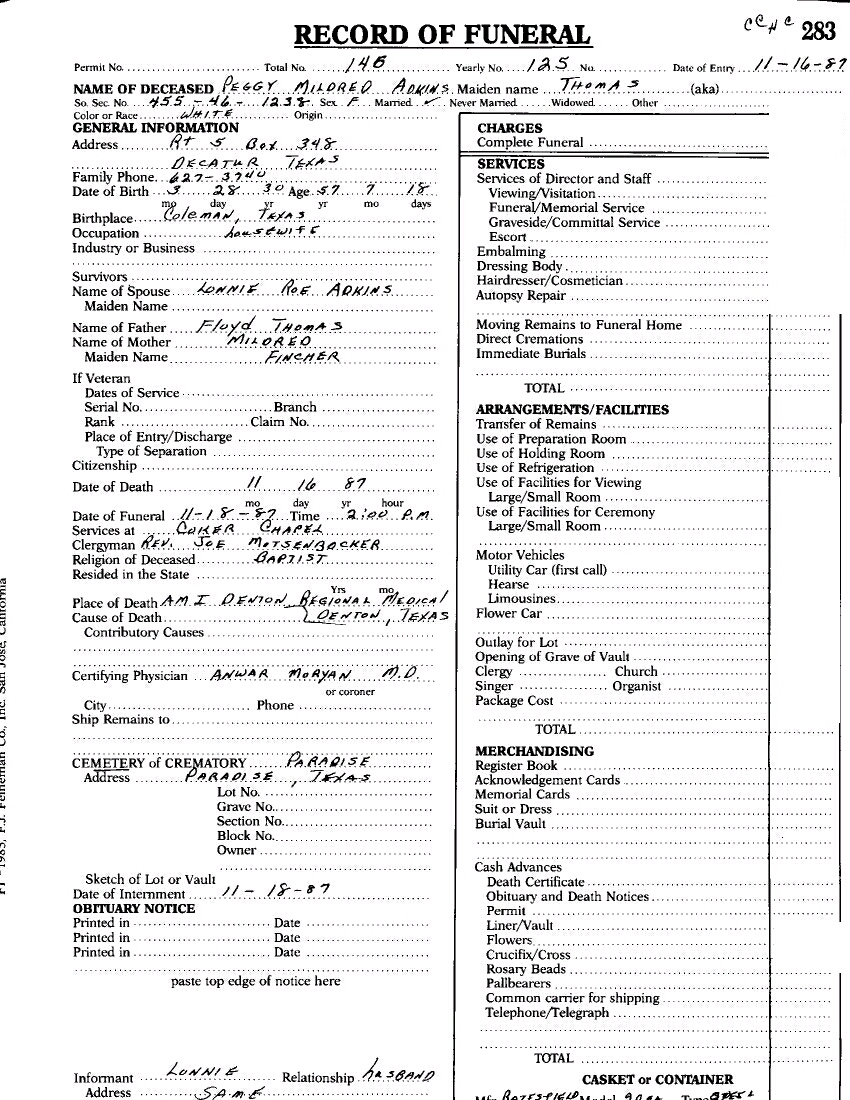 RECORD OF FUNERAL
CCHC 283
Permit No. Total No. 146 Yearly No. 125 No. Date of Entry 11-16-87
NAME OF DECEASED PEGGY MILDRED ADKINS Maiden name THOMAS (aka)
So. Sec. No. 455-46-1238 Sex F Married ✓ Never Married Widowed Other
Color or Race WHITE Origin
GENERAL INFORMATION
Address Rt 5 Box 348
DECATUR TEXAS
Family Phone 627-3740
Date of Birth 3 28 30 Age 57 7 18
mo day yr yr mo days
Birthplace Coleman, TEXAS
Occupation housewife
Industry or Business
Survivors
Name of Spouse LONNIE ROE ADKINS
Maiden Name
Name of Father Floyd THOMAS
Name of Mother MILDRED
Maiden Name FINCHER
If Veteran
Dates of Service
Serial No. Branch
Rank Claim No.
Place of Entry/Discharge
Type of Separation
Citizenship
Date of Death 11 16 87
mo day yr hour
Date of Funeral 11-18-87 Time 2:00 P.M.
Services at COKER CHAPEL
Clergyman REV. JOE MOTSENBOCKER
Religion of Deceased BAPTIST
Resided in the State
Yrs mo
Place of Death AMI DENTON REGIONAL MEDICAL
Cause of Death DENTON, TEXAS
Contributory Causes
Certifying Physician ANWAR MORYAN M.D.
or coroner
City Phone
Ship Remains to
CEMETERY of CREMATORY PARADISE
Address PARADISE, TEXAS
Lot No.
Grave No.
Section No.
Block No.
Owner
Sketch of Lot or Vault
Date of Internment 11-18-87
OBITUARY NOTICE
Printed in Date
Printed in Date
Printed in Date
paste top edge of notice here
Informant LONNIE Relationship husband
Address SAME
CHARGES
Complete Funeral
SERVICES
Services of Director and Staff
Viewing/Visitation
Funeral/Memorial Service
Graveside/Committal Service
Escort
Embalming
Dressing Body
Hairdresser/Cosmetician
Autopsy Repair
Moving Remains to Funeral Home
Direct Cremations
Immediate Burials
TOTAL
ARRANGEMENTS/FACILITIES
Transfer of Remains
Use of Preparation Room
Use of Holding Room
Use of Refrigeration
Use of Facilities for Viewing
Large/Small Room
Use of Facilities for Ceremony
Large/Small Room
Motor Vehicles
Utility Car (first call)
Hearse
Limousines
Flower Car
Outlay for Lot
Opening of Grave of Vault
Clergy Church
Singer Organist
Package Cost
TOTAL
MERCHANDISING
Register Book
Acknowledgement Cards
Memorial Cards
Suit or Dress
Burial Vault
Cash Advances
Death Certificate
Obituary and Death Notices
Permit
Liner/Vault
Flowers
Crucifix/Cross
Rosary Beads
Pallbearers
Common carrier for shipping
Telephone/Telegraph
TOTAL
CASKET or CONTAINER
Mfg. BATESVILLE Model Type STEEL
1985, F.J. Feineman Co., Inc. San Jose, California